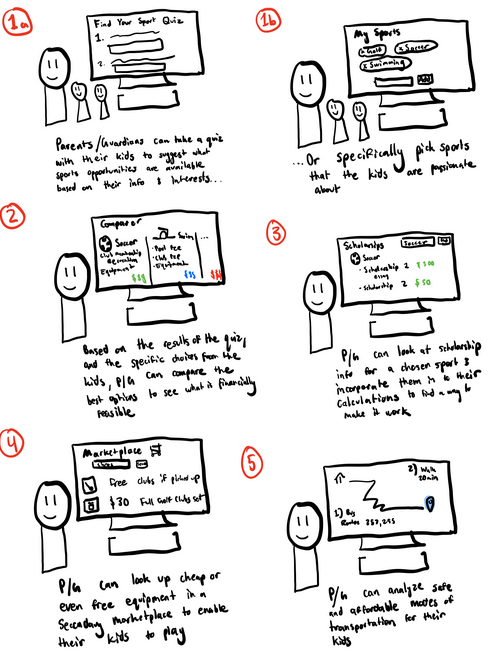 1a
Find Your Sport Quiz
1.
2.
Parents/Guardians can take a quiz
with their kids to suggest what
sports opportunities are available
based on their info & interests...
1b
My Sports
x Golf
x Soccer
x Swimming
Add
...Or specifically pick sports
that the kids are passionate
about
2
Comparor
Soccer
Club membership
Recreation
Equipment
$$$
Swim
· Pool Fee
· Club Fee
· Equipment
$$
...
Based on the results of the quiz,
and the specific choices from the
kids, P/G can compare the
best options to see what is financially
feasible
3
Scholarships
Soccer
Soccer
· Scholarship 1 $300
essay
· Scholarship 2 $50
P/G can look at scholarship
info for a chosen sport &
incorporate them in to their
calculations to find a way to
make it work
4
Marketplace
Free clubs if picked up
$30 Full Golf Clubs set
P/G can look up cheap or
even free equipment in a
Secondary marketplace to enable
their kids to play
5
2) Walk
20 min
1) Bus
Routes 357, 255
P/G can analyze safe
and affordable modes of
transportation for their
kids